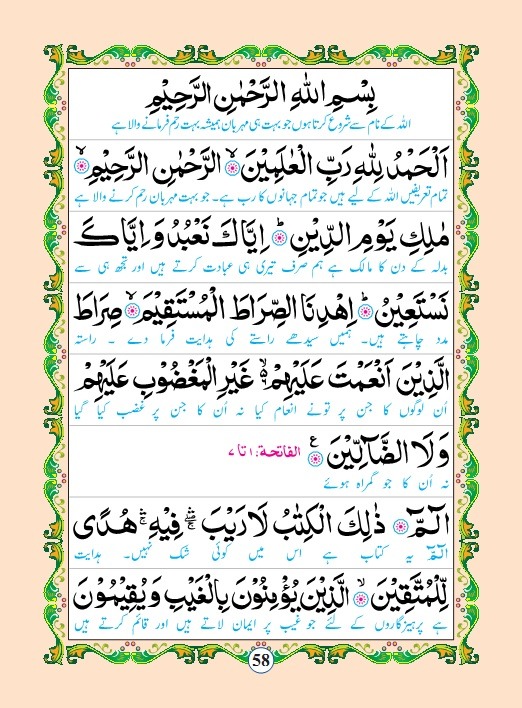 بِسْمِ اللهِ الرَّحْمٰنِ الرَّحِيْمِ
اللہ کے نام سے شروع کرتا ہوں جو بہت ہی مہربان ہمیشہ بہت رحم فرمانے والا ہے
اَلْحَمْدُ لِلّٰهِ رَبِّ الْعٰلَمِيْنَ ۙ الرَّحْمٰنِ الرَّحِيْمِ ۙ
تمام تعریفیں اللہ کے لیے ہیں جو تمام جہانوں کا رب ہے۔ جو بہت مہربان رحم کرنے والا ہے
مٰلِكِ يَوْمِ الدِّيْنِ ؕ اِيَّاكَ نَعْبُدُ وَ اِيَّاكَ
بدلہ کے دن کا مالک ہے ہم صرف تیری ہی عبادت کرتے ہیں اور تجھ ہی سے
نَسْتَعِيْنُ ؕ اِهْدِنَا الصِّرَاطَ الْمُسْتَقِيْمَ ۙ صِرَاطَ
مدد چاہتے ہیں۔ ہمیں سیدھے راستے کی ہدایت فرما دے ۔ راستہ
الَّذِيْنَ اَنْعَمْتَ عَلَيْهِمْ ۙ۬ غَيْرِ الْمَغْضُوْبِ عَلَيْهِمْ
اُن لوگوں کا جن پر تونے انعام کیا نہ اُن کا جن پر غضب کیا گیا
وَلَا الضَّآلِّيْنَ ع الفاتحة: ۱ تا ۷
نہ اُن کا جو گمراہ ہوئے
الٓمّٓ ذٰلِكَ الْكِتٰبُ لَا رَيْبَ ۛۖ فِيْهِ ۛۚ هُدًى
الٓمّٓ یہ کتاب ہے اس میں کوئی شک نہیں۔ ہدایت
لِّلْمُتَّقِيْنَ ۙ الَّذِيْنَ يُؤْمِنُوْنَ بِالْغَيْبِ وَ يُقِيْمُوْنَ
ہے پرہیزگاروں کے لئے جو غیب پر ایمان لاتے ہیں اور قائم کرتے ہیں
58